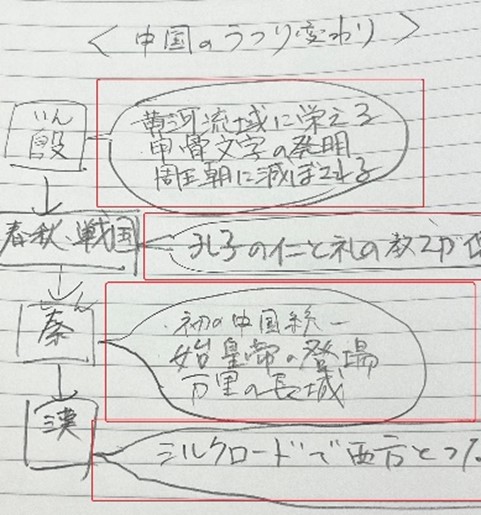 <中国のうつり変わり>
いん
殷
黄河流域に栄える
甲骨文字の発明
周王朝に滅ぼされる
春秋、戦国
孔子の仁と礼の教えが
しん
秦
初の中国統一
始皇帝の登場
万里の長城
漢
シルクロードで西方とつな